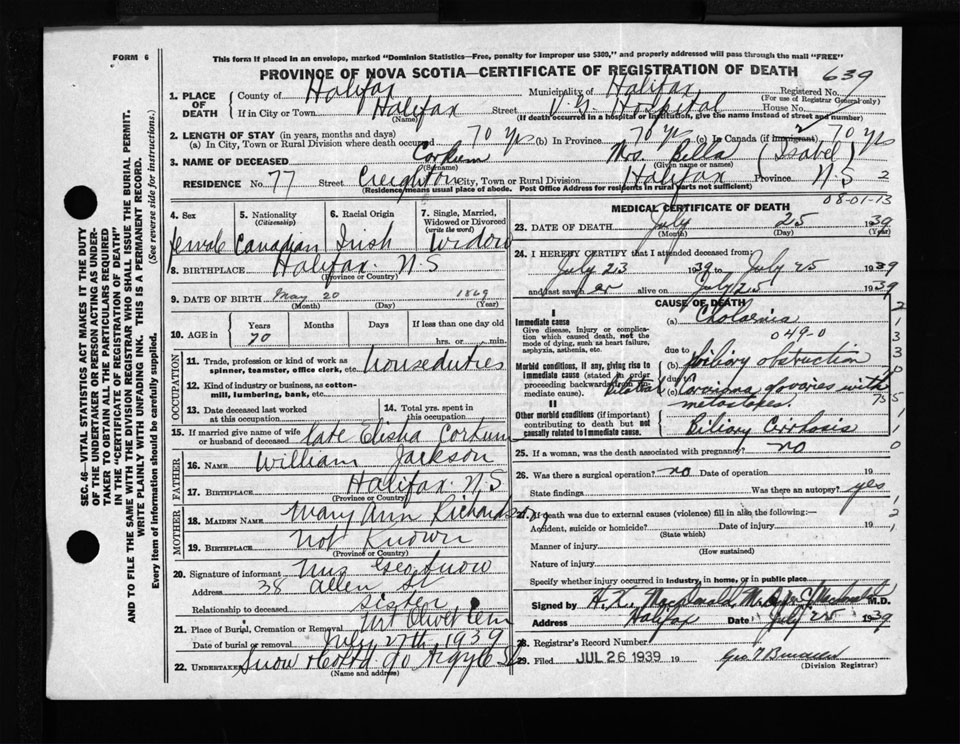 FORM 6
This form if placed in an envelope, marked "Dominion Statistics—Free, penalty for improper use $300," and properly addressed will pass through the mail "FREE"
PROVINCE OF NOVA SCOTIA—CERTIFICATE OF REGISTRATION OF DEATH
639
SEC. 46—VITAL STATISTICS ACT MAKES IT THE DUTY
OF THE UNDERTAKER OR PERSON ACTING AS UNDER-
TAKER TO OBTAIN ALL THE PARTICULARS REQUIRED
IN THE "CERTIFICATE OF REGISTRATION OF DEATH"
AND TO FILE THE SAME WITH THE DIVISION REGISTRAR WHO SHALL ISSUE THE BURIAL PERMIT.
WRITE PLAINLY WITH UNFADING INK. THIS IS A PERMANENT RECORD.
Every item of information should be carefully supplied. (See reverse side for instructions.)
1. PLACE OF DEATH County of Halifax Municipality of Halifax Registered No.
(For use of Registrar General only)
If in City or Town Halifax Street V. G. Hospital House No.
(Name) (If death occurred in a hospital or institution, give the name instead of street and number)
2. LENGTH OF STAY (in years, months and days)
(a) In City, Town or Rural Division where death occurred 70 yrs (b) In Province 70 yrs (c) In Canada (if immigrant) 70 yrs
3. NAME OF DECEASED Corkum Mrs. Bella (Isabel)
(Surname) (Given name or names)
RESIDENCE No. 77 Street Creighton City, Town or Rural Division Halifax Province N.S 2
(Residence means usual place of abode. Post Office Address for residents in rural parts not sufficient)
08-01-13
4. Sex 5. Nationality (Citizenship) 6. Racial Origin 7. Single, Married, Widowed or Divorced (write the word)
female Canadian Irish Widow
8. BIRTHPLACE Halifax N.S
(Province or Country)
9. DATE OF BIRTH May 20 1869
(Month) (Day) (Year)
10. AGE in Years Months Days If less than one day old
70 hrs. or min.
OCCUPATION
11. Trade, profession or kind of work as spinner, teamster, office clerk, etc. Houseduties
12. Kind of industry or business, as cotton-mill, lumbering, bank, etc.
13. Date deceased last worked at this occupation 14. Total yrs. spent in this occupation
15. If married give name of wife or husband of deceased late Elisha Corkum
FATHER
16. NAME William Jackson
17. BIRTHPLACE Halifax N.S
(Province or Country)
MOTHER
18. MAIDEN NAME Mary Ann Richardson
19. BIRTHPLACE Not Known
(Province or Country)
20. Signature of informant Mrs Geo Snow
Address 38 Allen St
Relationship to deceased sister
21. Place of Burial, Cremation or Removal Mt Olivet Cem
Date of burial or removal July 27th 1939
22. Undertaker Snow & Co Ltd 90 Argyle St
(Name and address)
MEDICAL CERTIFICATE OF DEATH
23. DATE OF DEATH July 25 1939
(Month) (Day) (Year)
24. I HEREBY CERTIFY that I attended deceased from:
July 23 1939 to July 25 1939
and last saw her alive on July 25 1939
CAUSE OF DEATH
I
Immediate cause (a) Cholaemia
Give disease, injury or complication which caused death, not the mode of dying, such as heart failure, asphyxia, asthenia, etc.
049-0
due to
Morbid conditions, if any, giving rise to immediate cause (stated in order proceeding backwards from immediate cause)
(b) biliary obstruction
due to
Bilateral (c) carcinoma of ovaries with metastases.
II
Other morbid conditions (if important) contributing to death but not causally related to immediate cause.
Biliary Cirrhosis
25. If a woman, was the death associated with pregnancy? no
26. Was there a surgical operation? no Date of operation 19
State findings Was there an autopsy? yes
27. If death was due to external causes (violence) fill in also the following:—
Accident, suicide or homicide? Date of injury 19
(State which)
Manner of injury
(How sustained)
Nature of injury
Specify whether injury occurred in industry, in home, or in public place
Signed by H. K. MacDonald, M.D. M.D.
Address Halifax Date July 25 1939
28. Registrar's Record Number
29. Filed JUL 26 1939 19
(Division Registrar)